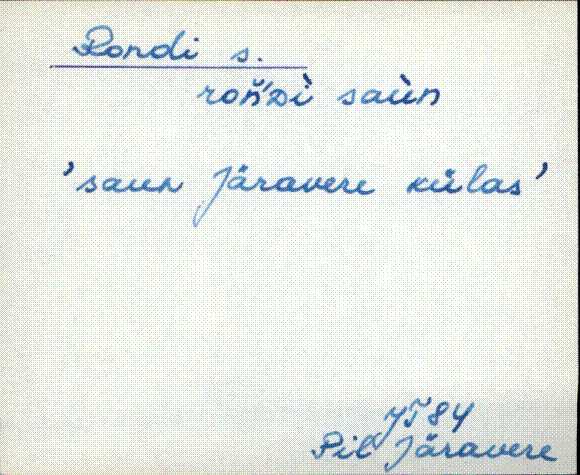 Rondi s.
roň́Dì saùn
'saun Järavere külas'
JT 84
Pil Järavere